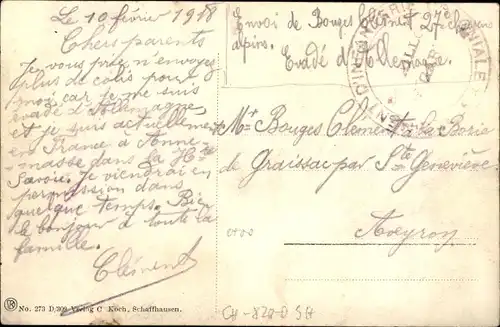 Le 10 février 1918
Chers parents
Je vous prie n envoyez
plus de colis pour
moi car je me suis
évadé d'Allemagne
et je suis actuellement
en France à Anne-
masse dans la Hte
Savoie. Je viendrai en
permission dans
quelque temps. Bien
le bonjour à toute la
famille.
Clément
Envoi de Bouges Clément 27e chasseurs
alpins.
Evadé d'Allemagne.
COLONIALE
Mr Bouges Clément à la Borie
de Graissac par Ste Geneviève
Aveyron
No. 273 D,309 Verlag C Koch, Schaffhausen.
CH-820-0 SH